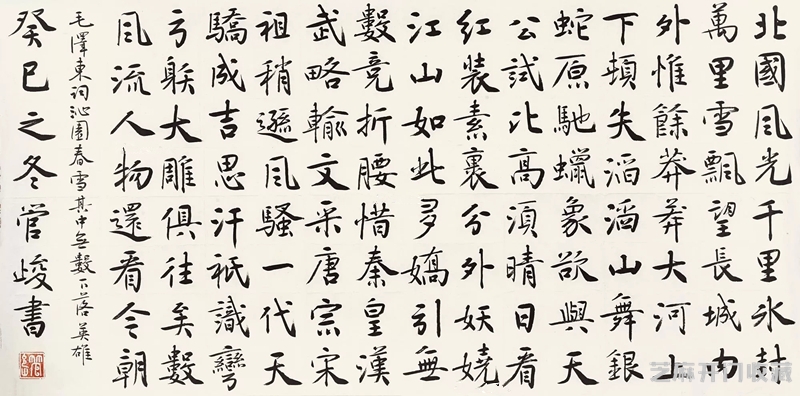 北國風光千里冰封
萬里雪飄望長城内
外惟餘莽莽大河上
下頓失滔滔山舞銀
蛇原馳蠟象欲與天
公試比高須晴日看
紅裝素裹分外妖嬈
江山如此多嬌引無
數竞折腰惜秦皇漢
武略輸文采唐宗宋
祖稍遜風騷一代天
驕成吉思汗祇識彎
弓射大雕俱往矣數
風流人物還看今朝
毛澤東詞沁園春雪其中無數下落英雄
癸巳之冬管峻書
芝麻开门收藏